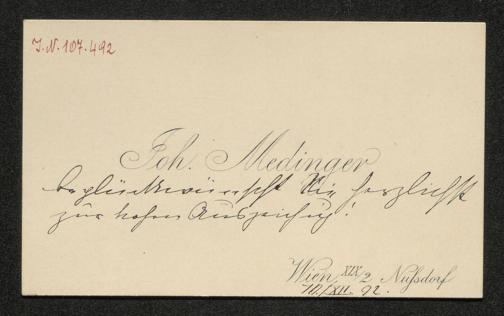 I.N. 107.492
Joh. Medinger
beglückwünscht Sie herzlichst
zur hohen Auszeichnung!
Wien XIX/2 Nußdorf
10./XII. 92.